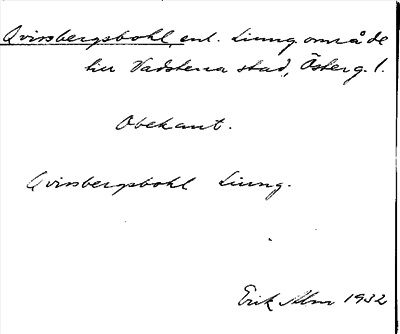 Qvissbergsbohl, enl. Liung. område
hu Vadstena stad, Österg. l.
Obekant.
Qvissbergsbohl Liung.
Erik Alm 1932